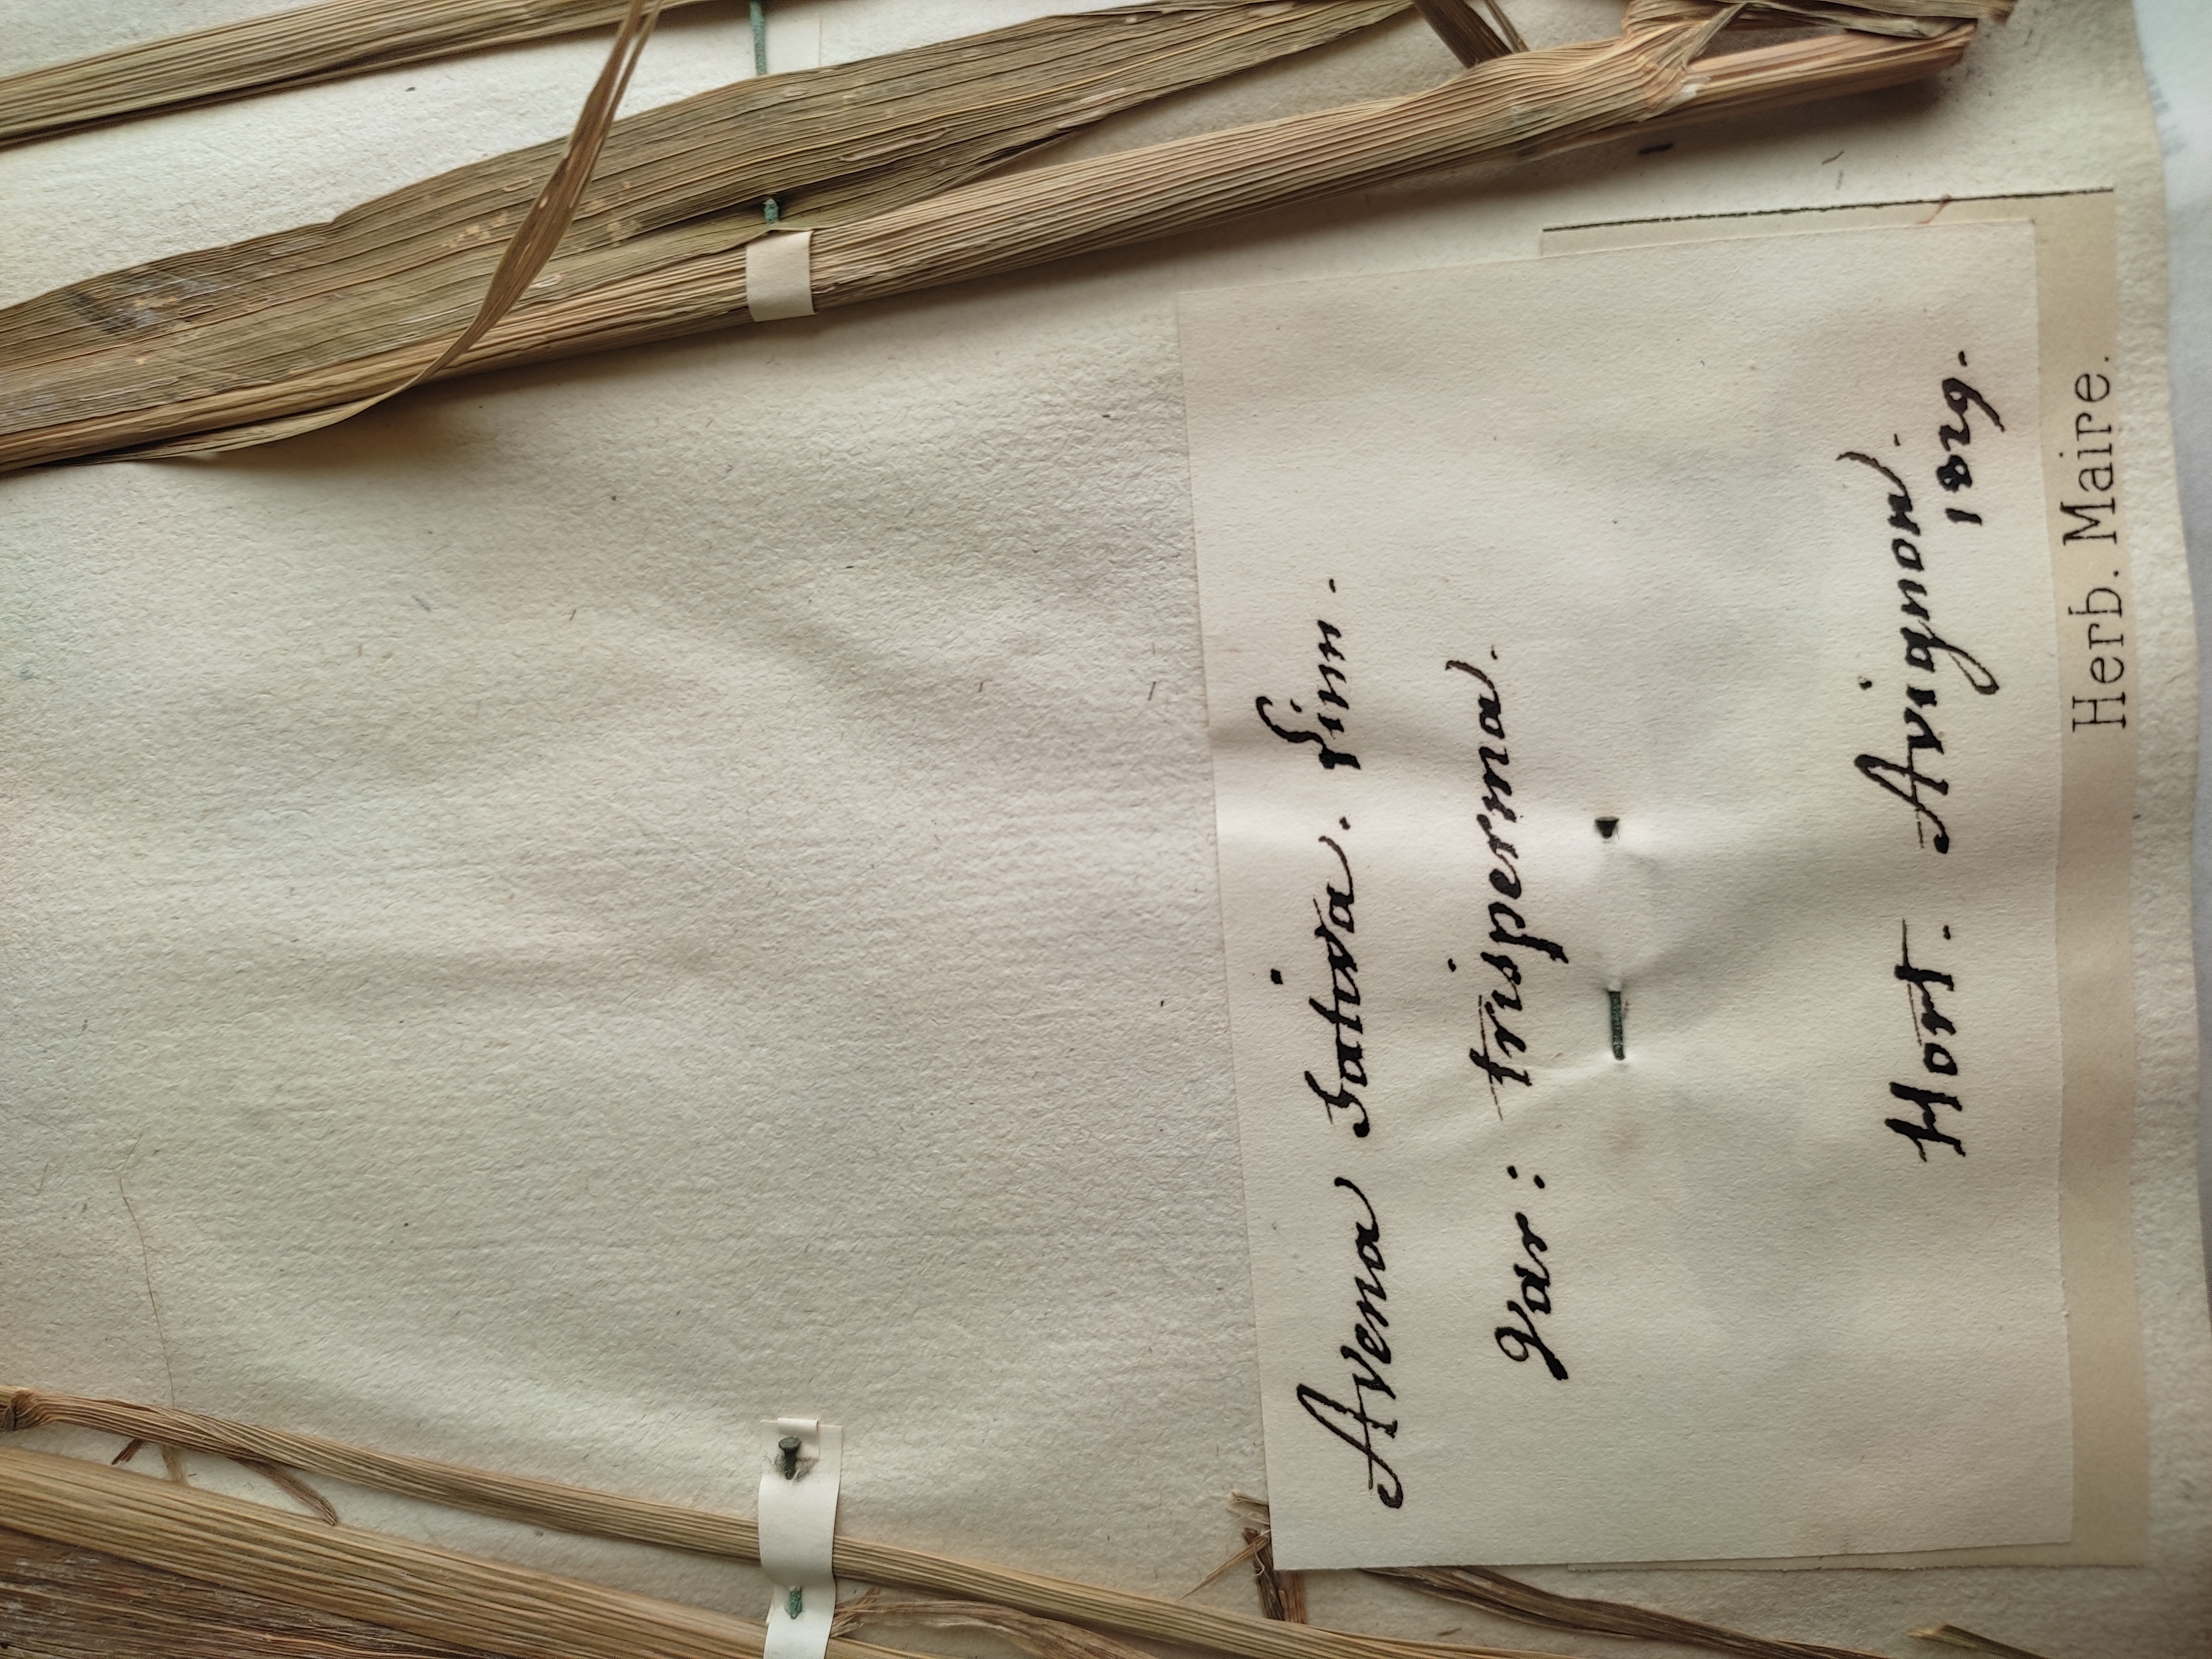 Avena Sativa. Linn.
Var: trisperma.
Hort. Avignon.
1829.
Herb. Maire.